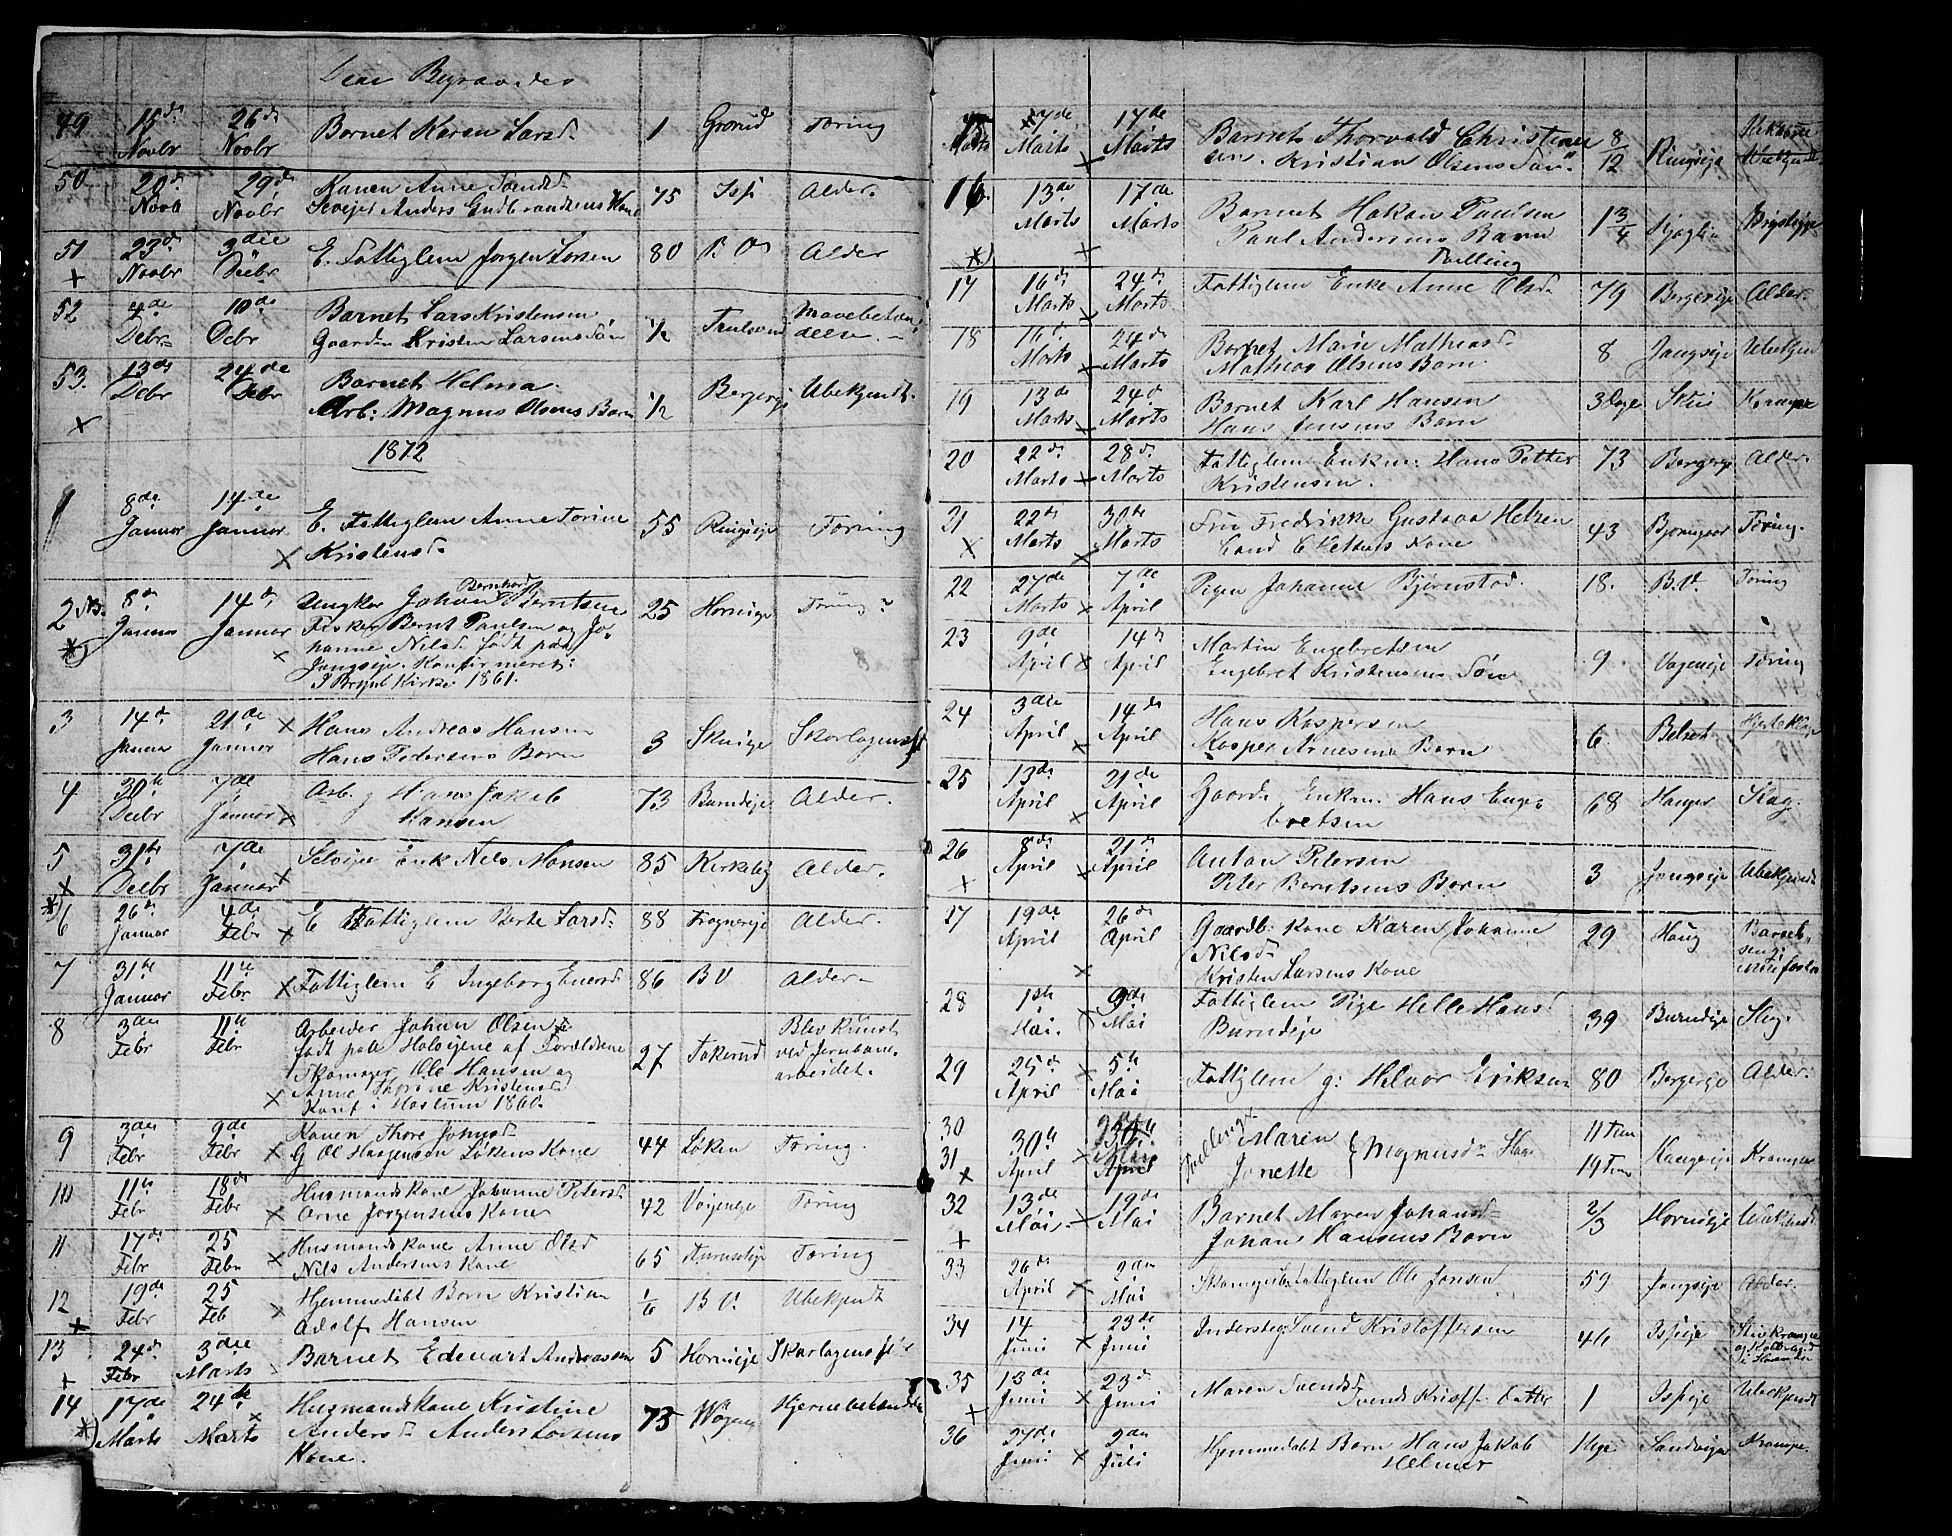 Begravede
49 15de Novbr 26de Novbr Barnet Karen Larsd. 1 Grorud Tæring
50 20de Novb 29de Novbr Konen Anne Svendsd. 75 Isp. Alder.
Selvejer Anders Gudbrandsens Kone
51 23de Novbr 3die Decbr E. Fattiglem Jørgen 80 B. V. Alder
52 4de Debr. 10de Debr Barnet Lars Kristensen ½
Gaardm Kristen Larsens Søn
53. 13de Debr 24de Debr Barnet Helma. ½ Bergerej Ubekjendt.
Arb: Magnus Olsens Barn
1872
1 8de Januar 14de Januar E. Fattiglem Anne Torine 55 Ringieje Tæring
Kristensd.
2 8de Januar 14de Januar Ungkar Johan Bernhard Berntsen 25 Horneje Tæring
Fisker Bernt Paulsen og Jo-
hanne Nilsd. født paa
Jongseje. Konfirmeret
I Kirke 1861.
3 14de Januar 21de Januar Hans Andreas Hansen 3 Skuieje Skarlagensf
Hans Pedersens Barn
4 30te Decbr 7de Januar Arb. g Hans Jakob 73 Burudeje Alder.
Hansen
5 31te Decbr 7de Januar Selvejer Enk Nils Monsen 85 Kirkeby Alder.
6 26de Januar 4de Febr E Fattiglem Berte Larsd. 88 Frognereje Alder.
7 31te Januar 11te Febr Fattiglem E Ingeborg Enersd 86 B V Alder
8 3die Febr 11te Febr Arbeider Johan Olsen 27 Tokerud Blev Knust
født paa af Forældrene ved Jernbane-
Skomager Ole Hansen og arbeidet.
Anne Thorine Kristensd
Konf i Haslum 1860.
9 3die Febr 9de Febr Konen Thore Johnsd 44 Løken Tæring
G Ol Haagensen Løkens Kone
10 11te Febr 18de Febr Husmandskone Johanne Petersd 42 Vøyeneje Tæring
Arne Jørgensens Kone
11 17de Febr 25 Febr Husmandskone Anne Olsd 65 Tæring
Nils Andersens Kone
12 19de Febr 25 Feb Hjemmedøbt Barn Kristian 1/6 B V. Ubekjendt
Adolf Hansen
13 24de Febr 3die Marts Barnet Edevart Andreassen 5 Horneje Skarlagensf
14 17de Marts 24de Marts Husmandskone Kristine 73 Vøyen Hjernebetændelse
Andersd. Anders Larsens
Kone.
15 7de Marts 17de Marts Barnet Thorvald Christian 8/12 Ringieje Ubekjendt
sen. Kristian Olsens Søn.
16 13de Marts 17de Marts Barnet Hakon Paulsen 1 3/4 Brystsyge
Paul Andersens Barn
Tvilling
17 16de Marts 24de Marts Fattiglem Enke Anne Olsd. 79 Bergereje Alder.
18 16de Marts 24de Marts Barnet Marie Mathiasd 8 Jongseje Ubekjend
Mathias Olsens Barn
19 13de Marts 24de Marts Barnet Karl Hansen 3 Dage Skui Krampe
Hans Jensens Barn
20 22de Marts 28de Marts Fattiglem Enkm. Hans Petter 73 Bergereje Alder.
Kristensen.
21 22de Marts 30te Marts Fru Fredrikke Gustava 43 Bjørnegaar Tæring.
Kone
22 27de Marts 7de April Pigen Johanne Bjørnstad. 18. B. V. Tæring
23 9de April 14de April Martin Engebretsen 9 Vøyeneje Tæring
Engebret Kristensens Søn
24 3die April 14de April Hans Kaspersen 6 Belset
Kasper Arnesens Barn
25 13de April 21de April Gaardm. Enkm. Hans Enge- 68 Hauger Slag.
bretsen
26 8de April 21de April Anton Petersen 3 Jongseje Ubekjendt
Peter Berntsens Barn
17 19de April 26de April Gaardb. Kone Karen Johanne 29 Haug Barsel-
Nilsd. seng
Kristen Larsens Kone
28 1ste Mai. 9de Mai Fattiglem Pige Helle Hansd 39 Burudeje Slag.
Burudeje
29 25de April 5te Mai Fattiglem g: Helvor Eriksen 80 Bergereje Alder.
30 30te April April Tvillinger Maren Magnusd. 11 Tim Krampe
31 Jonette 19 Tim
32 13de Mai 19de Mai Barnet Maren Johansd 2/3 Horneseje Ubekjendt
Johan Hansens Barn
33 26de April 2den Mai Fattiglem Ole Jensen 59 Jongseje Alder.
34 14 Juni 23de Juni Inderst Svend Kristoffersen 46 Ispeje
35 13de Juni 23de Juni Maren Svendsd 1 Ispeje Ubekjendt
Svend Kristoff. Datter
36 27de Juni 2den Juli Hjemmedøbt Barn Hans Jakob 1 Uge Sandvigen Krampe.
Helmer